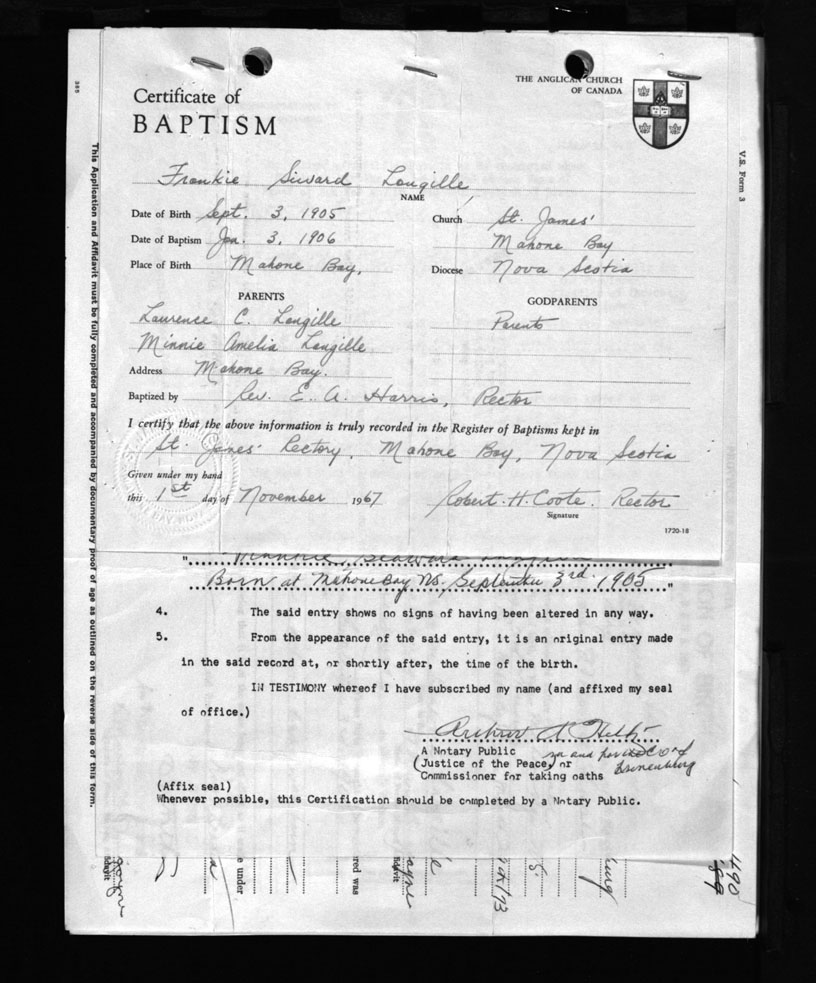 THE ANGLICAN CHURCH
OF CANADA
Certificate of
BAPTISM
Frankie Siward Langille
NAME
Date of Birth Sept. 3, 1905
Church St. James'
Date of Baptism Jan. 3, 1906
Mahone Bay
Place of Birth Mahone Bay,
Diocese Nova Scotia
PARENTS
GODPARENTS
Laurence C. Langille
Parents
Minnie Amelia Langille
Address Mahone Bay.
Baptized by Rev. E. A. Harris, Rector
I certify that the above information is truly recorded in the Register of Baptisms kept in
St. James' Rectory, Mahone Bay, Nova Scotia
Given under my hand
this 1st day of November 1967 Robert H. Coote. Rector
Signature
1720-18
Born at Mahone Bay NS. September 3rd 1905"
4. The said entry shows no signs of having been altered in any way.
5. From the appearance of the said entry, it is an original entry made
in the said record at, or shortly after, the time of the birth.
IN TESTIMONY whereof I have subscribed my name (and affixed my seal
of office.)
A Notary Public in and for the Co of
(Justice of the Peace,) or Lunenburg
Commissioner for taking oaths
(Affix seal)
Whenever possible, this Certification should be completed by a Notary Public.
This Application and Affidavit must be fully completed and accompanied by documentary proof of age as outlined on the reverse side of this form.
V.S. Form 3
385
davit
e under
red was
davit
490